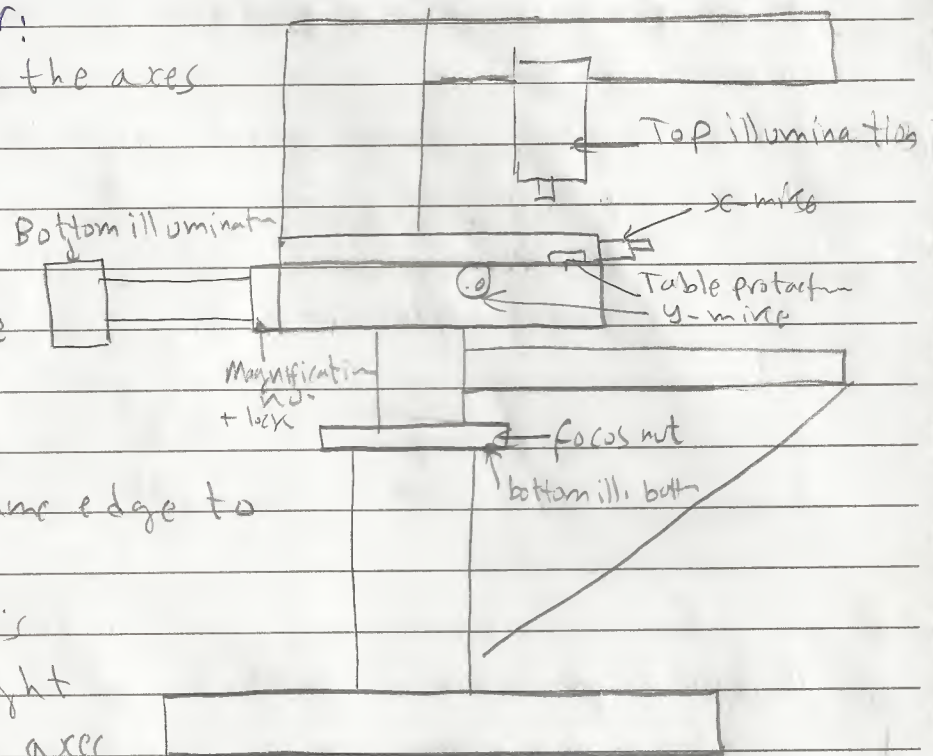 r:
the axes
Top illumination
x-mike
Bottom illuminat
Table protact
y-mike
Magnificati
no.
+ lock
focus nut
bottom ill. butt
ame edge to
is
ght
axes